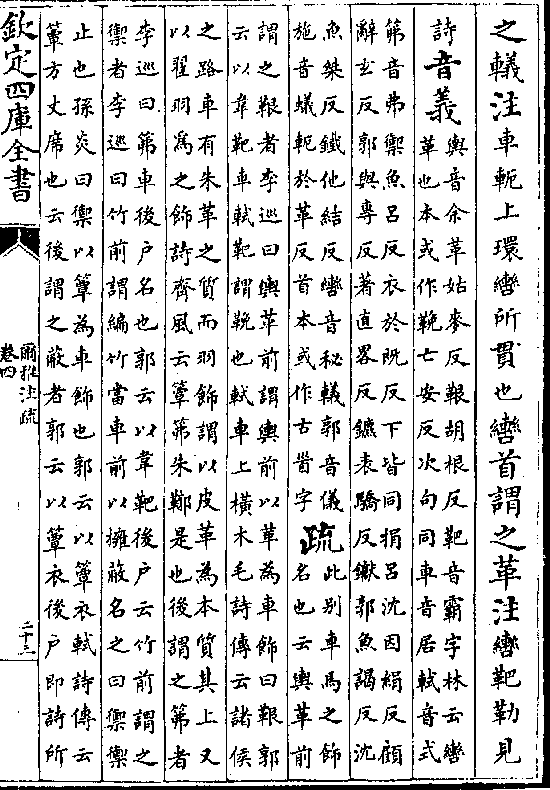 之轙注車軛上環轡所貫也轡首謂之革注轡靶勒見
詩音義輿音余革姑麥反艱胡根反靶音霸字林云轡
革也本或作鞔亡安反次句同車音居軾音式
第音弗禦魚呂反衣於既反下皆同捐呂沈因絹反顧
辭玄反郭與專反著直畧反鑣表驕反钀郭魚謁反沈
魚桀反鐵他結反轡音秘轙郭音儀
施音蟻軛於革反首本或作古𦣻字疏此别車馬之飾
名也云輿革前
謂之艱者李巡曰輿革前謂輿前以革為車飾曰艱郭
云以韋靶車軾靶謂鞔也軾車上横木毛詩傳云諸侯
之路車有朱革之質而羽飾謂以皮革為本質其上又
以翟羽為之飾詩齊風云簟第朱鞹是也後謂之第者
李巡曰第車後户名也郭云以韋靶後户云竹前謂之
禦者李巡曰竹前謂編竹當車前以擁蔽名之曰禦禦
止也孫炎曰禦以簟為車飾也郭云以簟衣軾詩傳云
簟方文席也云後謂之蔽者郭云以簟衣後户即詩所
欽定四庫全書
爾雅注疏
卷四
二十三